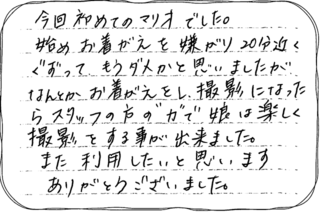 今回初めてのマリオでした。
始めお着がえを嫌がり20分近く
ぐずって、もうダメかと思いましたが、
なんとかお着がえをし、撮影になったら
スタッフの方の"ガ"で娘は楽しく
撮影をする事が出来ました。
また利用したいと思います
ありがとうございました。